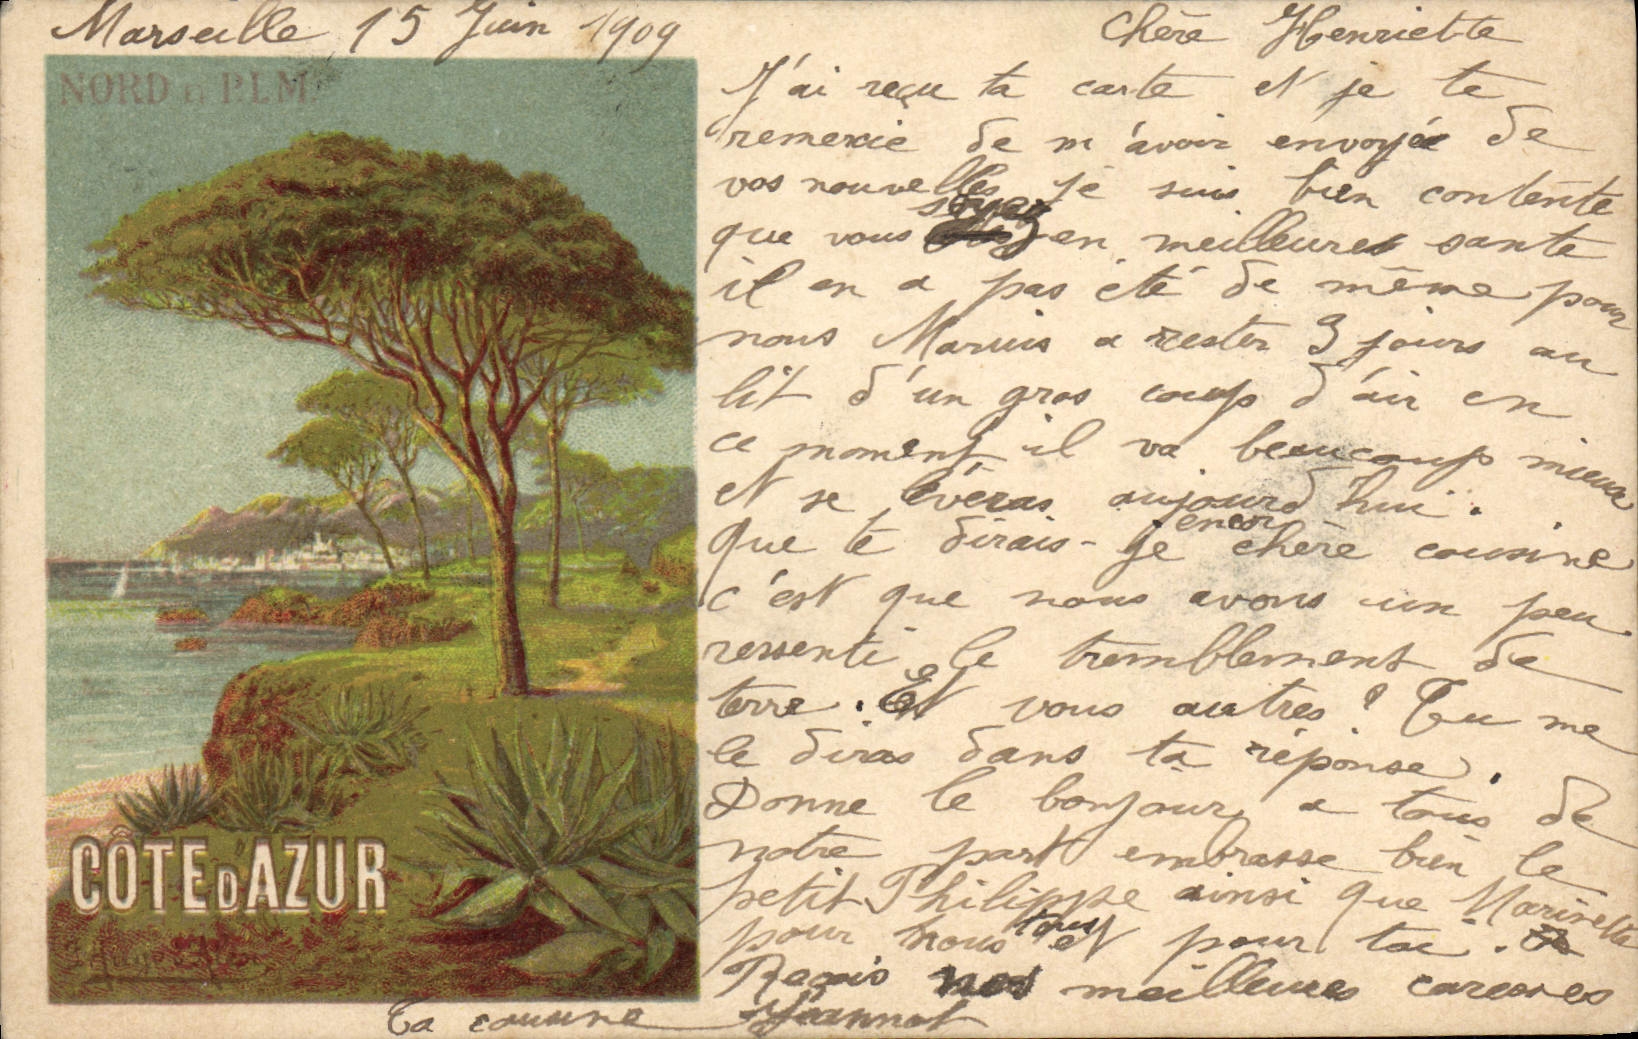 Marseille 15 Juin 1909
Chère Henriette
NORD & P.L.M.
J'ai reçu ta carte et je te
remercie de m'avoir envoyée de
vos nouvelles je suis bien contente
que vous soyez en meilleures sante
il en a pas été de même pour
nous Marius a rester 3 jours au
lit d'un gros coup d'air en
ce moment il va beaucoup mieux
et se lèveras aujourd'hui.
Que te dirais-je encor chère cousine
c'est que nous avons un peu
ressenti le tremblement de
terre. Et vous autres? Tu me
le diras dans ta réponse.
Donne le bonjour a tous de
notre part embrasse bien le
petit Philippe ainsi que Marinette
pour nous tous et pour toi.
Reçois nos meilleures caresses
Ta cousine
CÔTE D'AZUR